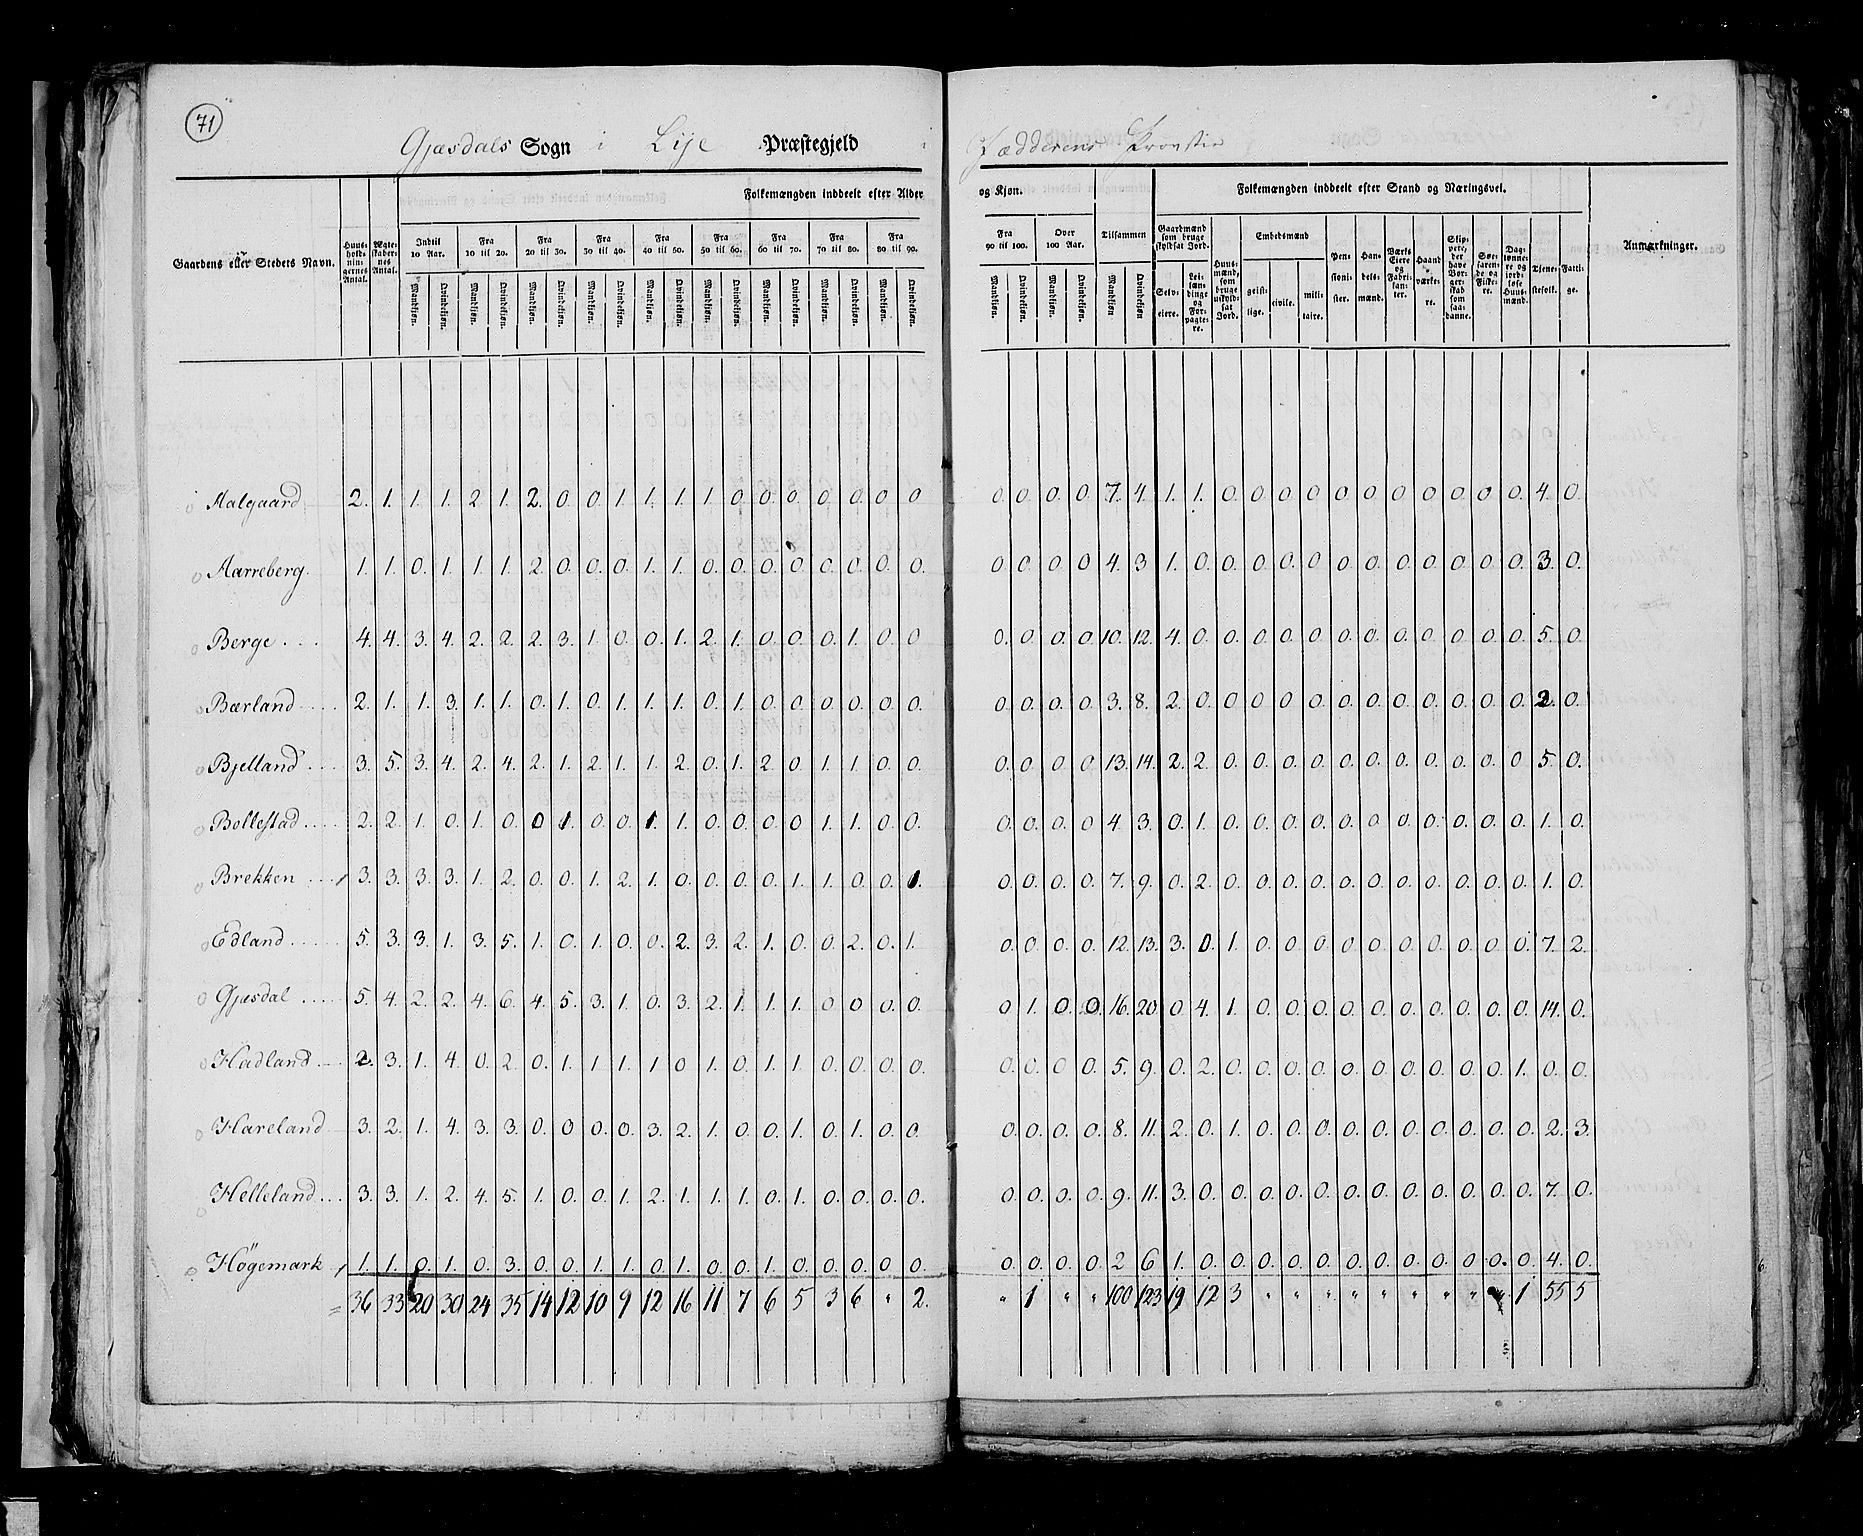 71
Gjæsdals Sogn i Lije Præstegjeld i Jædderens Provstie
Gaardens eller Stedets Navn. Huusholdningernes Antal. Ægteskabernes Antal. Folkemængden inddeelt efter Alder og Kjøn. Tilsammen Folkemængden inddeelt efter Stand og Næringsvei. Anmærkninger.
Indtil 10 Aar. Fra 10 til 20. Fra 20 til 30. Fra 30 til 40. Fra 40 til 50. Fra 50 til 60. Fra 60 til 70. Fra 70 til 80. Fra 80 til 90. Fra 90 til 100. Over 100 Aar.
Mandkjøn. Qvindekjøn. Mandkjøn. Qvindekjøn. Mandkjøn. Qvindekjøn. Mandkjøn. Qvindekjøn. Mandkjøn. Qvindekjøn. Mandkjøn. Qvindekjøn. Mandkjøn. Qvindekjøn. Mandkjøn. Qvindekjøn. Mandkjøn. Qvindekjøn. Mandkjøn. Qvindekjøn. Mandkjøn. Qvindekjøn. Mandkjøn. Qvindekjøn
Gaardmænd som bruge skyldsat Jord. Selveiere. Leilændinge og Forpagtere. Huusmænd, som bruge uskyldsat Jord. Embedsmænd geistlige. civile. militaire. Pensionister. Handelsmænd. Værks Eiere og Fabrikanter. Haandværkere. Slippere, der have Borgerskab som saadanne. Søefarende og Fiskere. Daglønnere og jordløse Huusmænd. Tjenestefolk. Fattige.
Aalgaard 2. 1. 1. 1. 2. 1. 2. 0. 0. 1. 1. 1. 1. 0. 0. 0. 0. 0. 0. 0 0. 0. 0. 0. 7. 4. 1. 1. 0. 0. 0. 0. 0. 0. 0. 0. 0. 0. 0. 4. 0.
Aarreberg. 1. 1. 0. 1. 1. 1. 2. 0. 0. 0. 1. 1. 0. 0. 0. 0. 0. 0. 0. 0. 0. 0. 0. 0 4. 3. 1. 0. 0. 0. 0. 0. 0. 0. 0. 0. 0. 0. 0. 3. 0.
Berge . . . 4. 4. 3. 4. 2. 2. 2. 3. 1. 0. 0. 1. 2. 1. 0. 0. 0. 1. 0. 0 0. 0. 0. 0 10. 12. 4. 0. 0. 0. 0. 0. 0. 0. 0. 0. 0. 0. 0. 5. 0.
Bærland . . . 2. 1. 1. 3. 1. 1. 0. 1. 0. 1. 1. 1. 0. 1. 0. 0. 0. 0. 0. 0. 0. 0. 0. 0. 3. 8. 2. 0. 0. 0. 0. 0. 0. 0. 0. 0. 0. 0. 0. 2. 0.
Bjelland . . . 3. 5. 3. 4. 2. 4. 2. 1. 2. 1. 1. 2. 0. 1. 2. 0 1. 1. 0. 0. 0. 0. 0. 0 13. 14. 2. 2. 0. 0. 0. 0. 0. 0. 0. 0. 0. 0. 0 5. 0.
Bollestad . . . 2. 2. 1. 0. 1. 0. 0 1. 0. 0. 1. 1. 0. 0. 0. 0 1. 1. 0. 0. 0. 0. 0. 0 4. 3. 0. 1. 0. 0. 0. 0. 0. 0. 0. 0. 0. 0. 0. 1. 0.
Brekken . . . 3. 3. 3. 3. 1. 2. 0. 0. 1. 2. 1. 0. 0. 0. 0. 1. 1. 0. 0. 1. 0. 0. 0. 0. 7. 9. 0. 2. 0. 0. 0. 0. 0. 0. 0. 0. 0. 0. 0. 1. 0.
Edland . . . 5. 3. 3. 1. 3. 5. 1. 0. 1. 0. 0. 2. 3. 2. 1. 0. 0. 2. 0. 1. 0. 0. 0. 0. 12. 13. 3. 0. 1. 0. 0. 0. 0. 0. 0. 0. 0. 0. 0. 7. 2.
Gjæsdal . . . 5. 4. 2. 2. 4. 6. 4. 5. 3. 1. 0. 3. 2. 1. 1. 1. 0. 0. 0. 0. 0 1. 0. 0. 16. 20. 0. 4. 1. 0. 0. 0. 0. 0. 0. 0. 0. 0. 0. 14. 0.
Hadland . . . 2. 3. 1. 4. 0. 2. 0. 1. 1. 1. 1 0 1. 0. 1. 1. 0. 0. 0. 0. 0. 0. 0. 0. 5. 9. 0. 2. 0. 0. 0. 0. 0. 0. 0. 0. 0. 0. 1. 0. 0.
Hareland 3. 2. 1. 4. 3. 3. 0. 0. 0. 0. 3. 2. 1. 0. 0. 1. 0. 1. 0. 0. 0. 0. 0. 0. 8. 11. 2. 0. 1. 0. 0. 0. 0. 0. 0. 0. 0. 0. 0. 2. 3.
Helleland . . . 3. 3. 1. 2. 4. 5. 1. 0. 0. 1. 2. 1. 1. 1. 0. 1. 0. 0. 0. 0. 0. 0. 0. 0. 9. 11. 3. 0. 0. 0. 0. 0. 0. 0. 0. 0. 0. 0. 0. 7. 0.
Högemark 1. 1. 0. 1. 0. 3. 0. 0. 1. 1. 0. 1. 0. 0. 1. 0. 0. 0. 0. 0. 0. 0. 0. 0. 2 6. 1. 0. 0. 0. 0. 0. 0. 0. 0. 0. 0. 0. 0. 4. 0.
36 33 20 30 24 35 14 12 10 9 12 16 11 7 6 5 3 6 " 2. " 1 " " 100 123 19 12 3 " " " " " " " " " 1 55 5